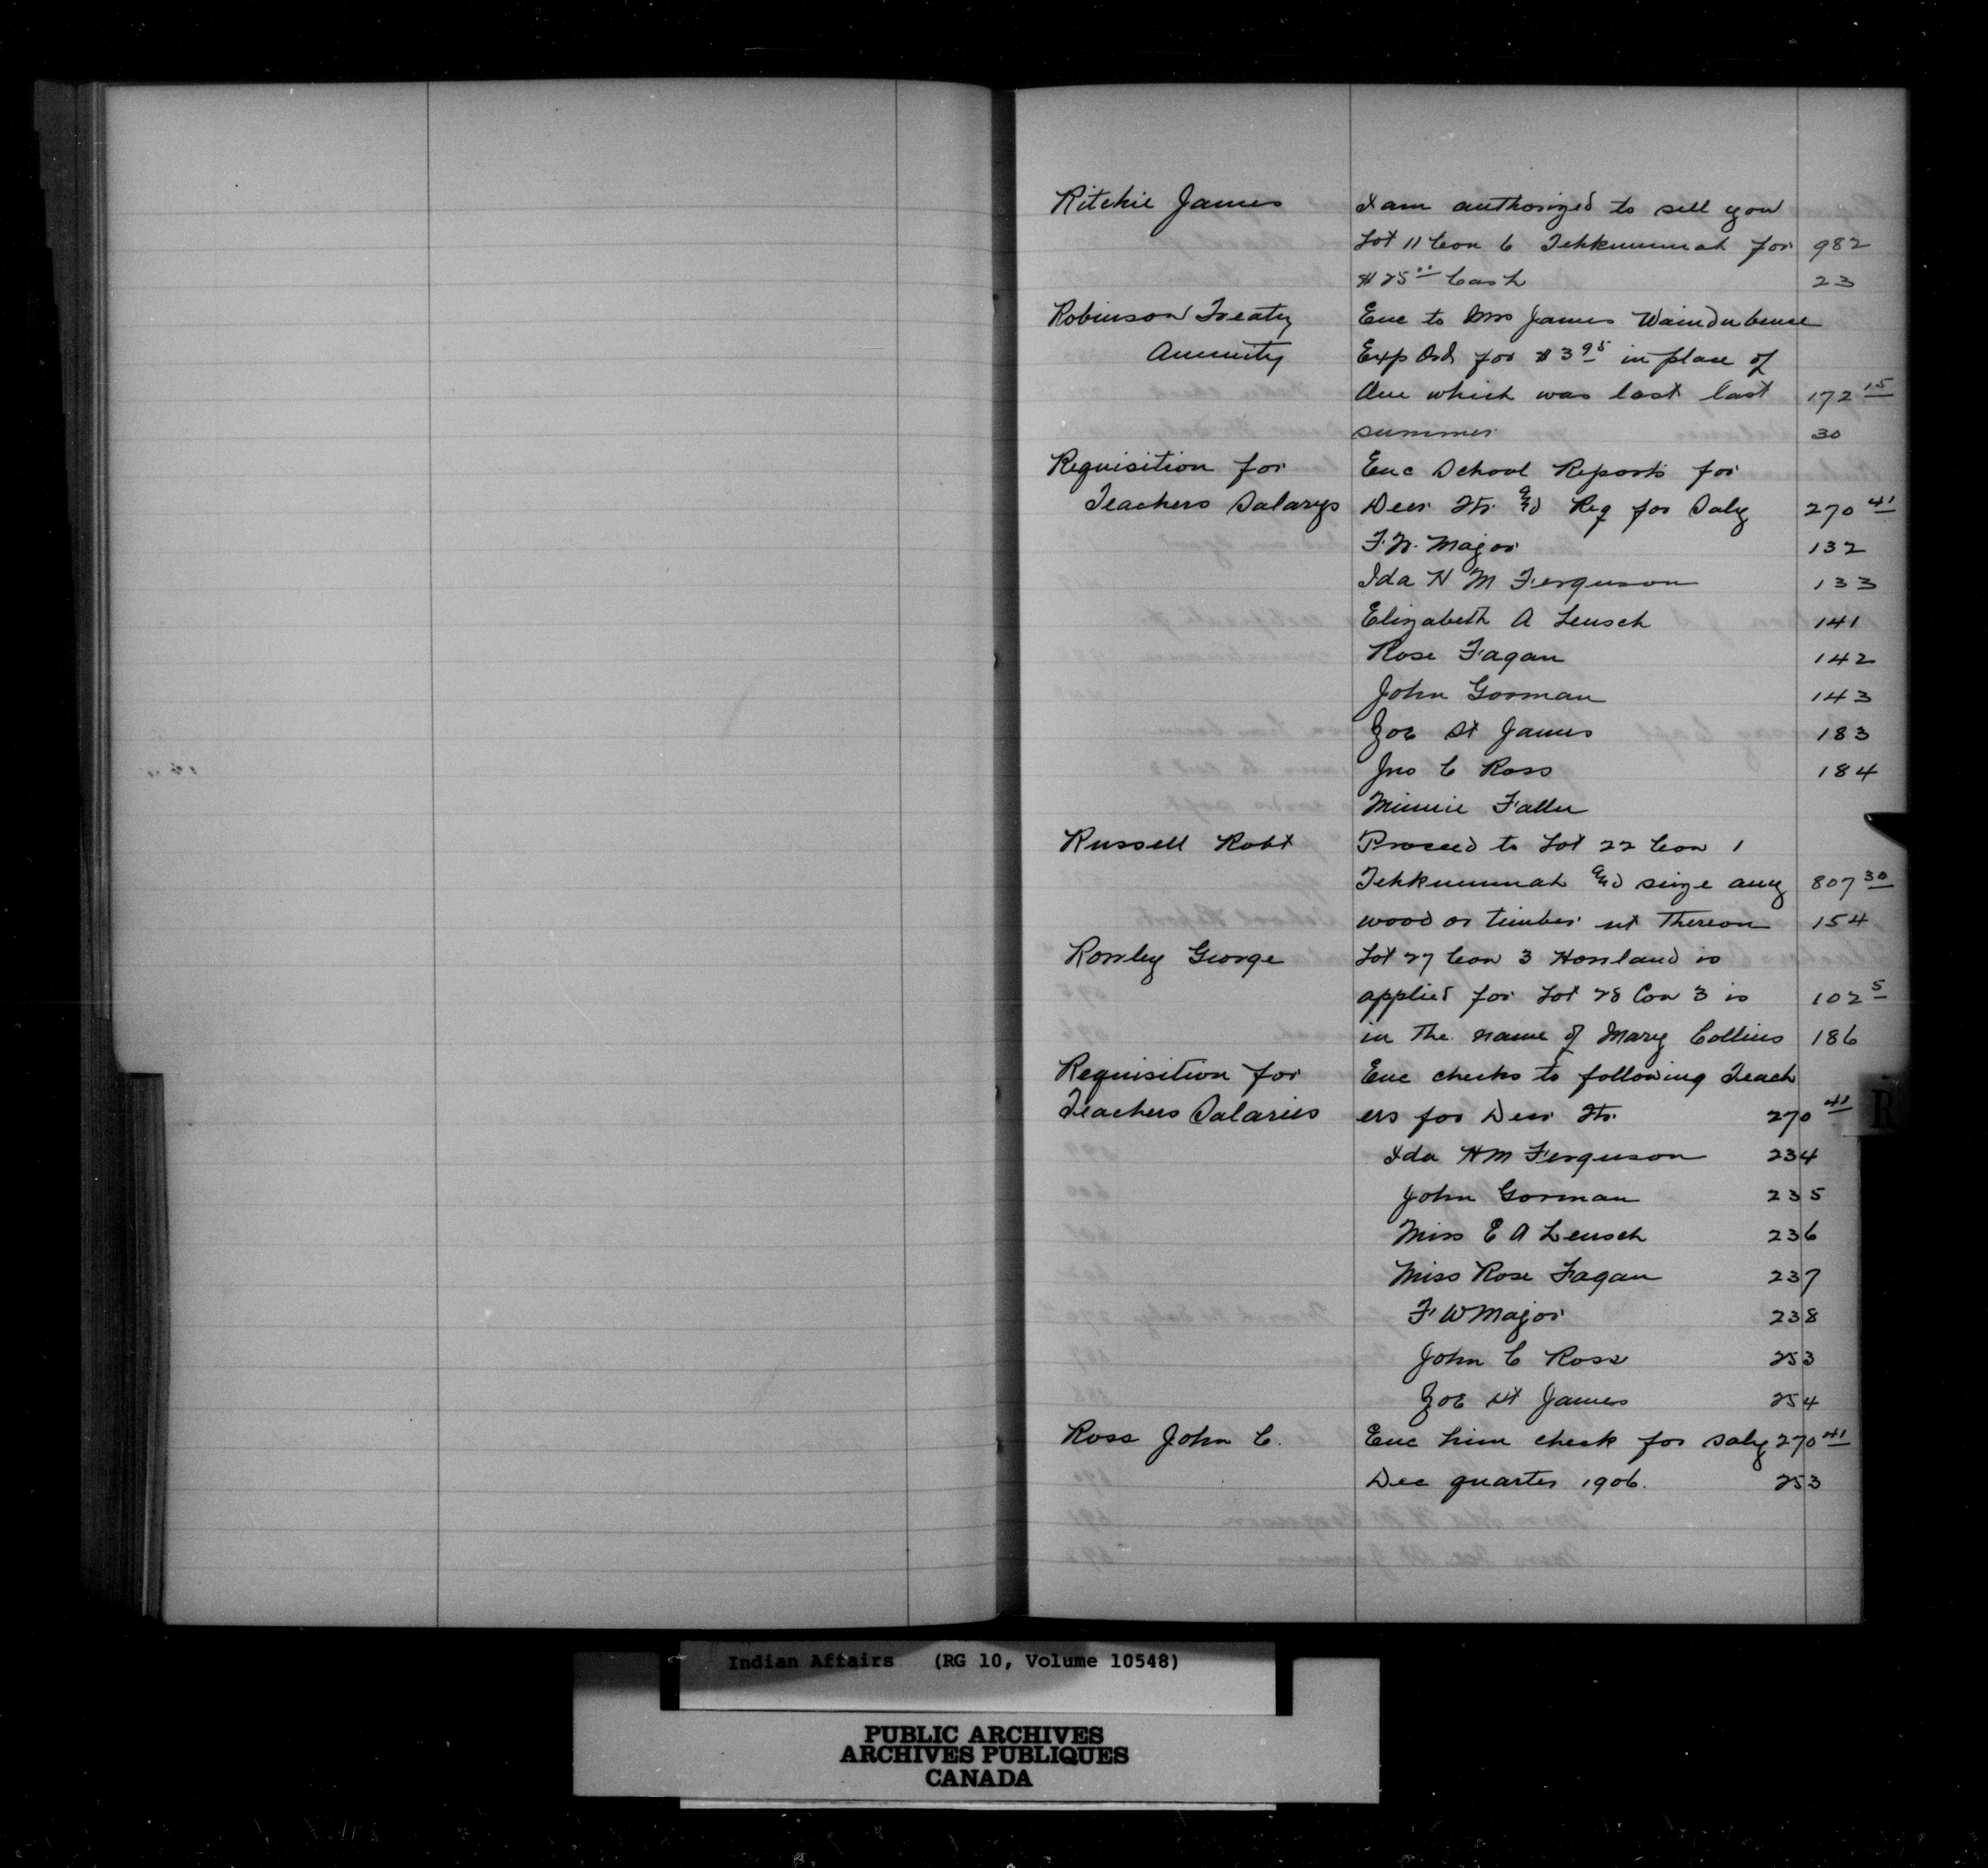 Ritchie James I am authorized to sell you
Lot 11 Con 6 Tehkummah for 982
$25.00 Cash 23
Robinson Treaty Enc to Mrs James
Annuity Exp Ord for $3 95 in place of
One which was lost last 172 15
summer 30
Requisition for Enc School Reports for
Teachers Salarys Decr Qtr and Req for Saly 270 41
F. W. Major 132
Ida H M Ferguson 133
Elizabeth A Leusch 141
Rose Fagan 142
John Gorman 143
Zoe St James 183
Jno C Ross 184
Minnie Faller
Russell Robt Proceed to Lot 22 Con 1
Tehkummah and seize any 807 30
wood or timber cut thereon 154
Rowley George Lot 27 Con 3 Howland is
applied for Lot 28 Con 3 is 102 5
in the name of Mary Collins 186
Requisition for Enc checks to following Teach
Teachers Salaries ers for Decr Qtr. 270 41
Ida H M Ferguson 234
John Gorman 235
Miss E A Leusch 236
Miss Rose Fagan 237
F W Major 238
John C Ross 253
Zoe St James 254
Ross John C. Enc him check for saly 270 41
Dec quarter 1906. 253
R
Indian Affairs (RG 10, Volume 10548)
PUBLIC ARCHIVES
ARCHIVES PUBLIQUES
CANADA